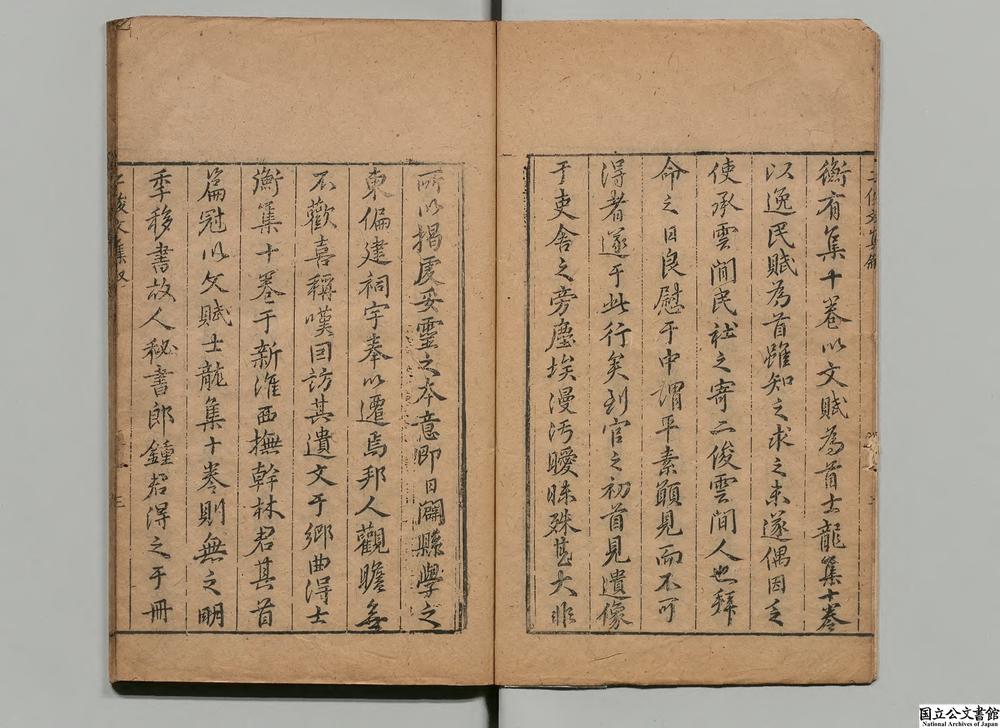 衡有集十卷以文賦為首士龍集十卷
以逸民賦為首雖知之求之未遂偶因乏
使承雲間民社之寄二俊雲間人也拜
命之日良慰于中謂平素願見而不可
得者遂于此行矣到官之初首見遺像
于吏舍之旁塵埃漫汚曖昧殊甚大非
所以揭虔妥靈之本意即日闢縣學之
東偏建祠宇奉以遷焉邦人觀瞻無
不歡喜稱嘆囙訪其遺文于鄉曲得士
衡集十卷于新淮西撫幹林君其首
篇冠以文賦士龍集十卷則無之明
季移書故人秘書郎鍾君得之于冊
国立公文書館
National Archives of Japan